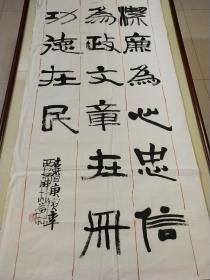 潔廉為心忠信
為政文章在冊
功德在民